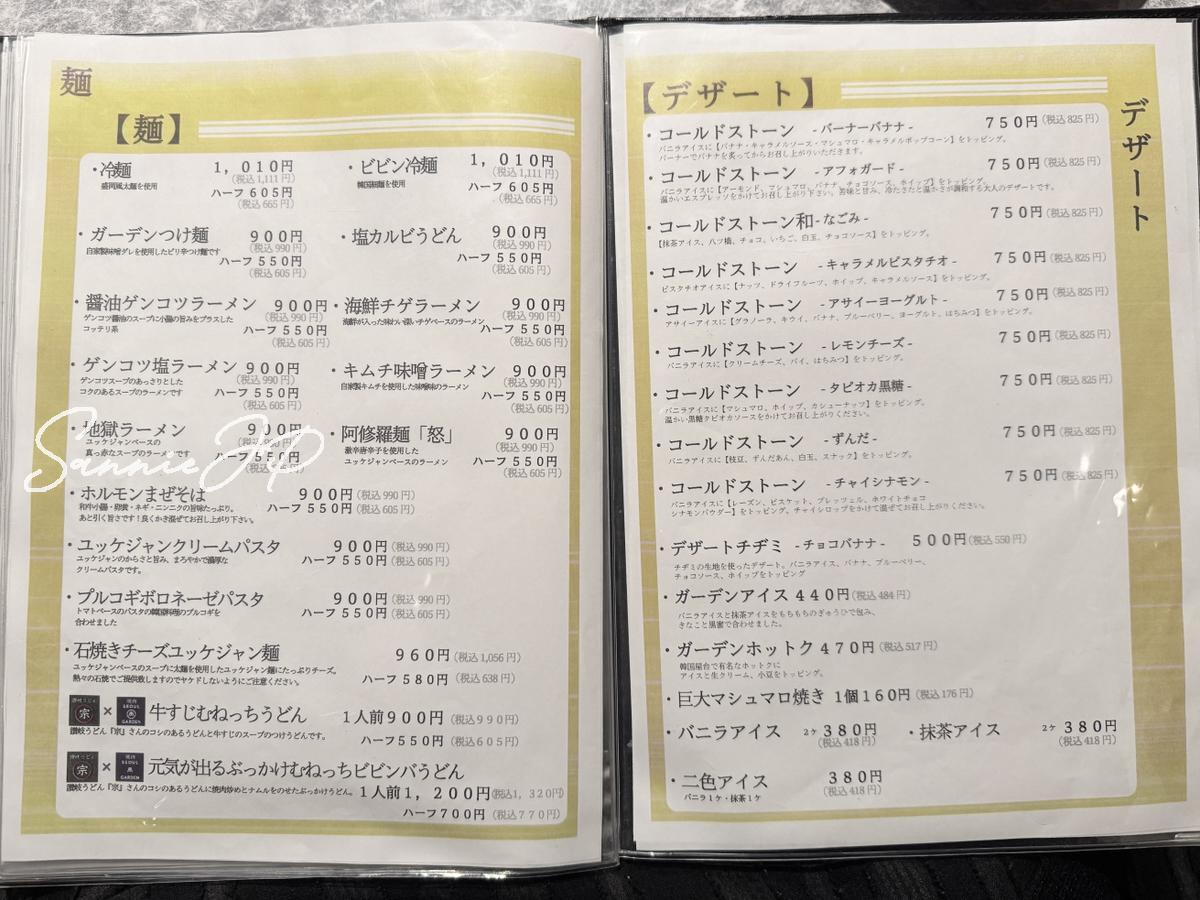 麺
【麺】
・冷麺 1,010円
(税込1,111円)
盛岡風太麺を使用
ハーフ 605円
(税込 665円)
・ビビン冷麺 1,010円
(税込1,111円)
韓国細麺を使用
ハーフ 605円
(税込 665円)
・ガーデンつけ麺 900円
(税込 990円)
自家製味噌ダレを使用したピリ辛つけ麺です
ハーフ 550円
(税込 605円)
・塩カルビうどん 900円
(税込 990円)
ハーフ 550円
(税込 605円)
・醤油ゲンコツラーメン 900円
(税込 990円)
ゲンコツ醤油のスープに小腸の旨みをプラスした
コッテリ系
ハーフ 550円
(税込 605円)
・海鮮チゲラーメン 900円
(税込 990円)
海鮮が入った味わい深いチゲベースのラーメン
ハーフ 550円
(税込 605円)
・ゲンコツ塩ラーメン 900円
(税込 990円)
ゲンコツスープのあっさりとした
コクのあるスープのラーメンです
ハーフ 550円
(税込 605円)
・キムチ味噌ラーメン 900円
(税込 990円)
自家製キムチを使用した味噌味のラーメン
ハーフ 550円
(税込 605円)
・地獄ラーメン 900円
(税込 990円)
ユッケジャンベースの
真っ赤なスープのラーメンです
ハーフ 550円
(税込 605円)
SannieJKP
・阿修羅麺「怒」 900円
(税込 990円)
激辛唐辛子を使用した
ユッケジャンベースのラーメン
ハーフ 550円
(税込 605円)
・ホルモンまぜそば 900円(税込 990円)
和牛小腸・卵黄・ネギ・ニンニクの旨味たっぷり。
ハーフ 550円(税込 605円)
あと引く旨さです！良くかき混ぜてお召し上がり下さい。
・ユッケジャンクリームパスタ 900円(税込 990円)
ユッケジャンのからさと旨み、まろやかで濃厚な
クリームパスタです。
ハーフ 550円(税込 605円)
・プルコギボロネーゼパスタ 900円(税込 990円)
トマトベースのパスタの韓国料理のプルコギを
合わせました
ハーフ 550円(税込 605円)
・石焼きチーズユッケジャン麺 960円(税込 1,056円)
ユッケジャンベースのスープに太麺を使用したユッケジャン麺にたっぷりチーズ。
熱々の石焼でご提供致しますのでヤケドしないようにご注意ください。
ハーフ 580円(税込 638円)
宗 × SEOUL GARDEN 牛すじむねっちうどん 1人前900円(税込990円)
讃岐うどん『宗』さんのコシのあるうどんと牛すじのスープのつけうどんです。
ハーフ550円(税込605円)
宗 × SEOUL GARDEN 元気が出るぶっかけむねっちビビンバうどん
讃岐うどん『宗』さんのコシのあるうどんに焼肉炒めとナムルをのせたぶっかけうどん。 1人前1,200円(税込1,320円)
ハーフ700円(税込770円)
【デザート】
デザート
・コールドストーン -バーナーバナナ- 750円(税込 825円)
バニラアイスに【バナナ・キャラメルソース・マシュマロ・キャラメルポップコーン】をトッピング。
バーナーでバナナを炙ってからお召し上がりいただきます。
・コールドストーン -アフォガード- 750円(税込 825円)
バニラアイスに【アーモンド、マシュマロ、バナナ、チョコソース、ホイップ】をトッピング。
温かいエスプレッソをかけてお召し上がり下さい。苦味と甘み、冷たさと温かさが調和する大人のデザートです。
・コールドストーン和-なごみ- 750円(税込 825円)
【抹茶アイス、八ツ橋、チョコ、いちご、白玉、チョコソース】をトッピング。
・コールドストーン -キャラメルピスタチオ- 750円(税込 825円)
ピスタチオアイスに【ナッツ、ドライフルーツ、ホイップ、キャラメルソース】をトッピング。
・コールドストーン -アサイーヨーグルト- 750円(税込 825円)
アサイーアイスに【グラノーラ、キウイ、バナナ、ブルーベリー、ヨーグルト、はちみつ】をトッピング。
・コールドストーン -レモンチーズ- 750円(税込 825円)
バニラアイスに【クリームチーズ、パイ、はちみつ】をトッピング。
・コールドストーン -タピオカ黒糖- 750円(税込 825円)
バニラアイスに【マシュマロ、ホイップ、カシューナッツ】をトッピング。
温かい黒糖タピオカソースをかけてお召し上がりください。
・コールドストーン -ずんだ- 750円(税込 825円)
バニラアイスに【枝豆、ずんだあん、白玉、スナック】をトッピング。
・コールドストーン -チャイシナモン- 750円(税込 825円)
バニラアイスに【レーズン、ビスケット、プレッツェル、ホワイトチョコ
シナモンパウダー】をトッピング。チャイシロップをかけて混ぜてお召し上がりください。
・デザートチヂミ -チョコバナナ- 500円(税込 550円)
チヂミの生地を使ったデザート。バニラアイス、バナナ、ブルーベリー、
チョコソース、ホイップをトッピング
・ガーデンアイス 440円(税込 484円)
バニラアイスと抹茶アイスをもちもちのぎゅうひで包み、
きなこと黒蜜で合わせました。
・ガーデンホットク 470円(税込 517円)
韓国屋台で有名なホットクに
アイスと生クリーム、小豆をトッピング。
・巨大マシュマロ焼き 1個160円(税込 176円)
・バニラアイス 2ケ 380円
(税込 418円)
・抹茶アイス 2ケ 380円
(税込 418円)
・二色アイス 380円
バニラ1ケ・抹茶1ケ
(税込 418円)